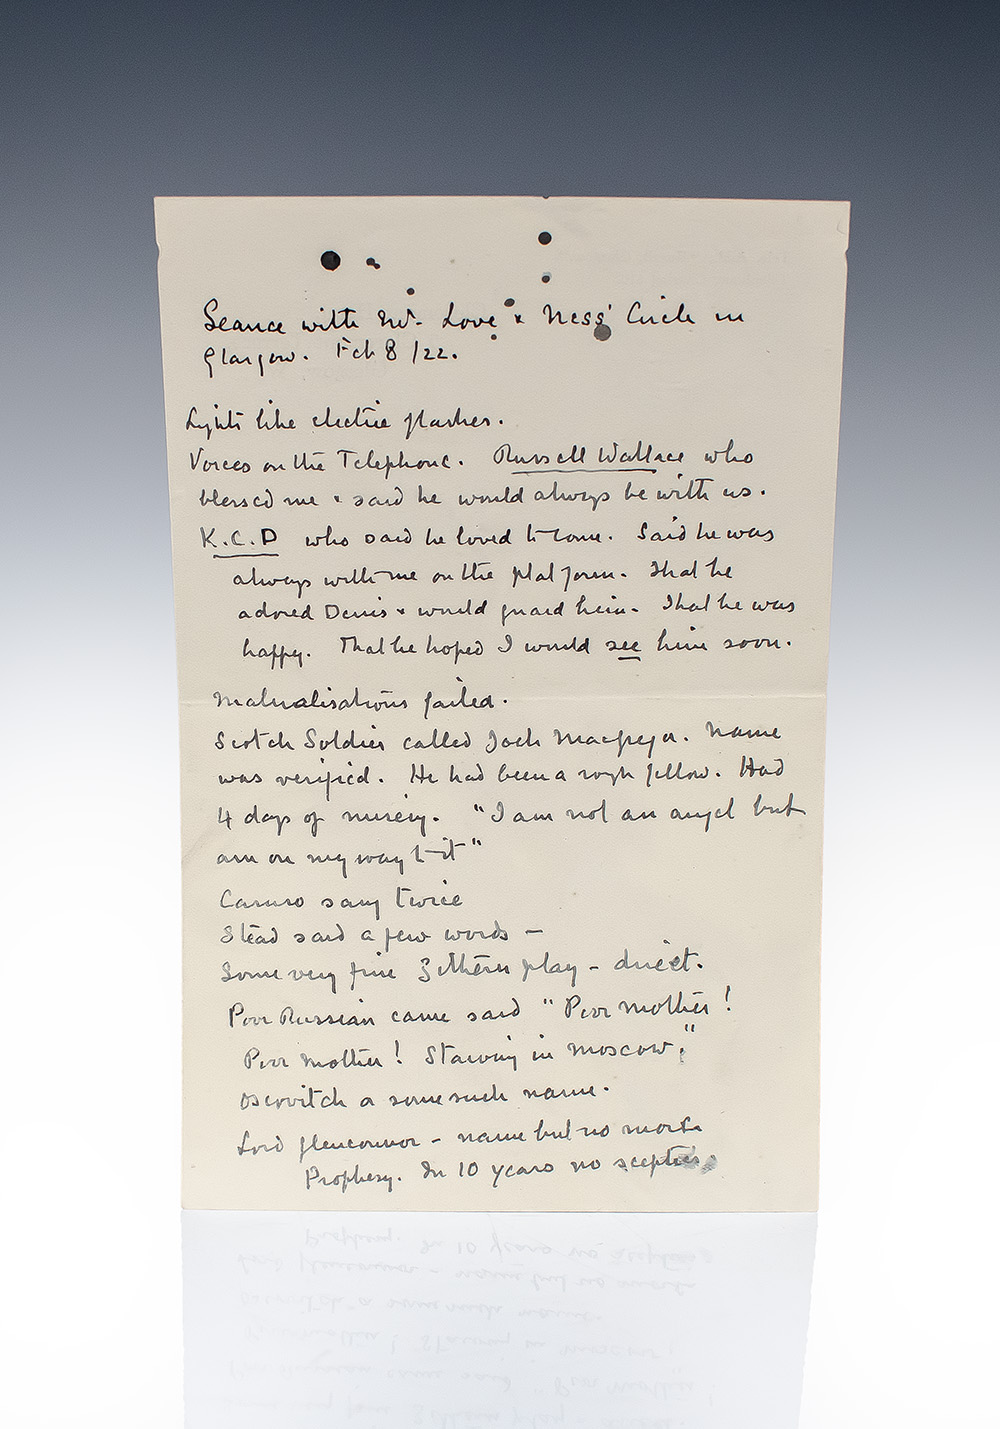 Seance with Mr. Love & Ness' Circle in
Glasgow. Feb 8/22.
Lights like electric flashes.
Voices on the Telephone. Russell Wallace who
blessed me & said he would always be with us.
K.C.D who said he loved to come. Said he was
always with me on the platform. That he
adored Denis & would guard him. That he was
happy. That he hoped I would see him soon.
Materialisations failed.
Scotch Soldier called Jock Macgregor. Name
was verified. He had been a rough fellow. Had
4 days of misery. "I am not an angel but
am on my way to it"
Caruso sang twice
Stead said a few words —
Some very fine Zithern play - direct.
Poor Russian came said "Poor Mother!
Poor Mother! Starving in Moscow."
Oscovitch or some such name.
Lord Glenconnor - name but no more
Prophesy. In 10 years no sceptics